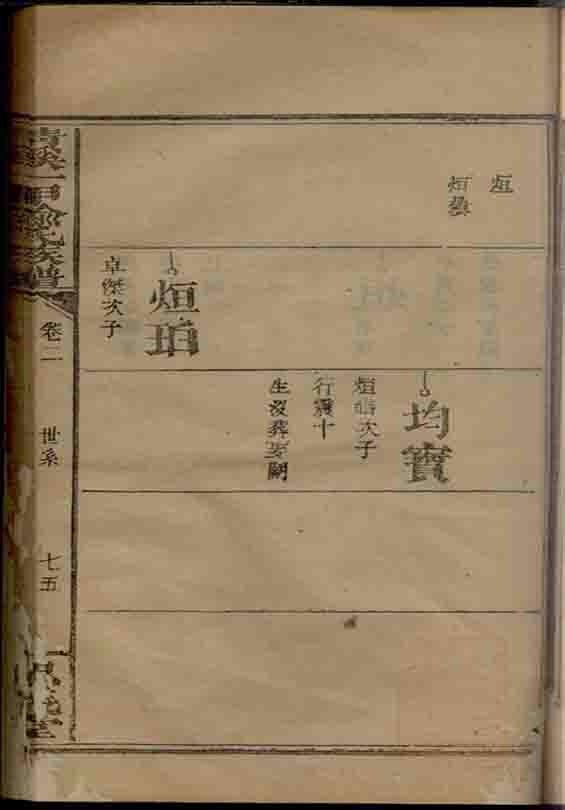 烜
烜
均寶
烜
次子
行震十
生沒葬娶闕
烜珀
卓傑次子
氏族譜
卷二
世系
七五